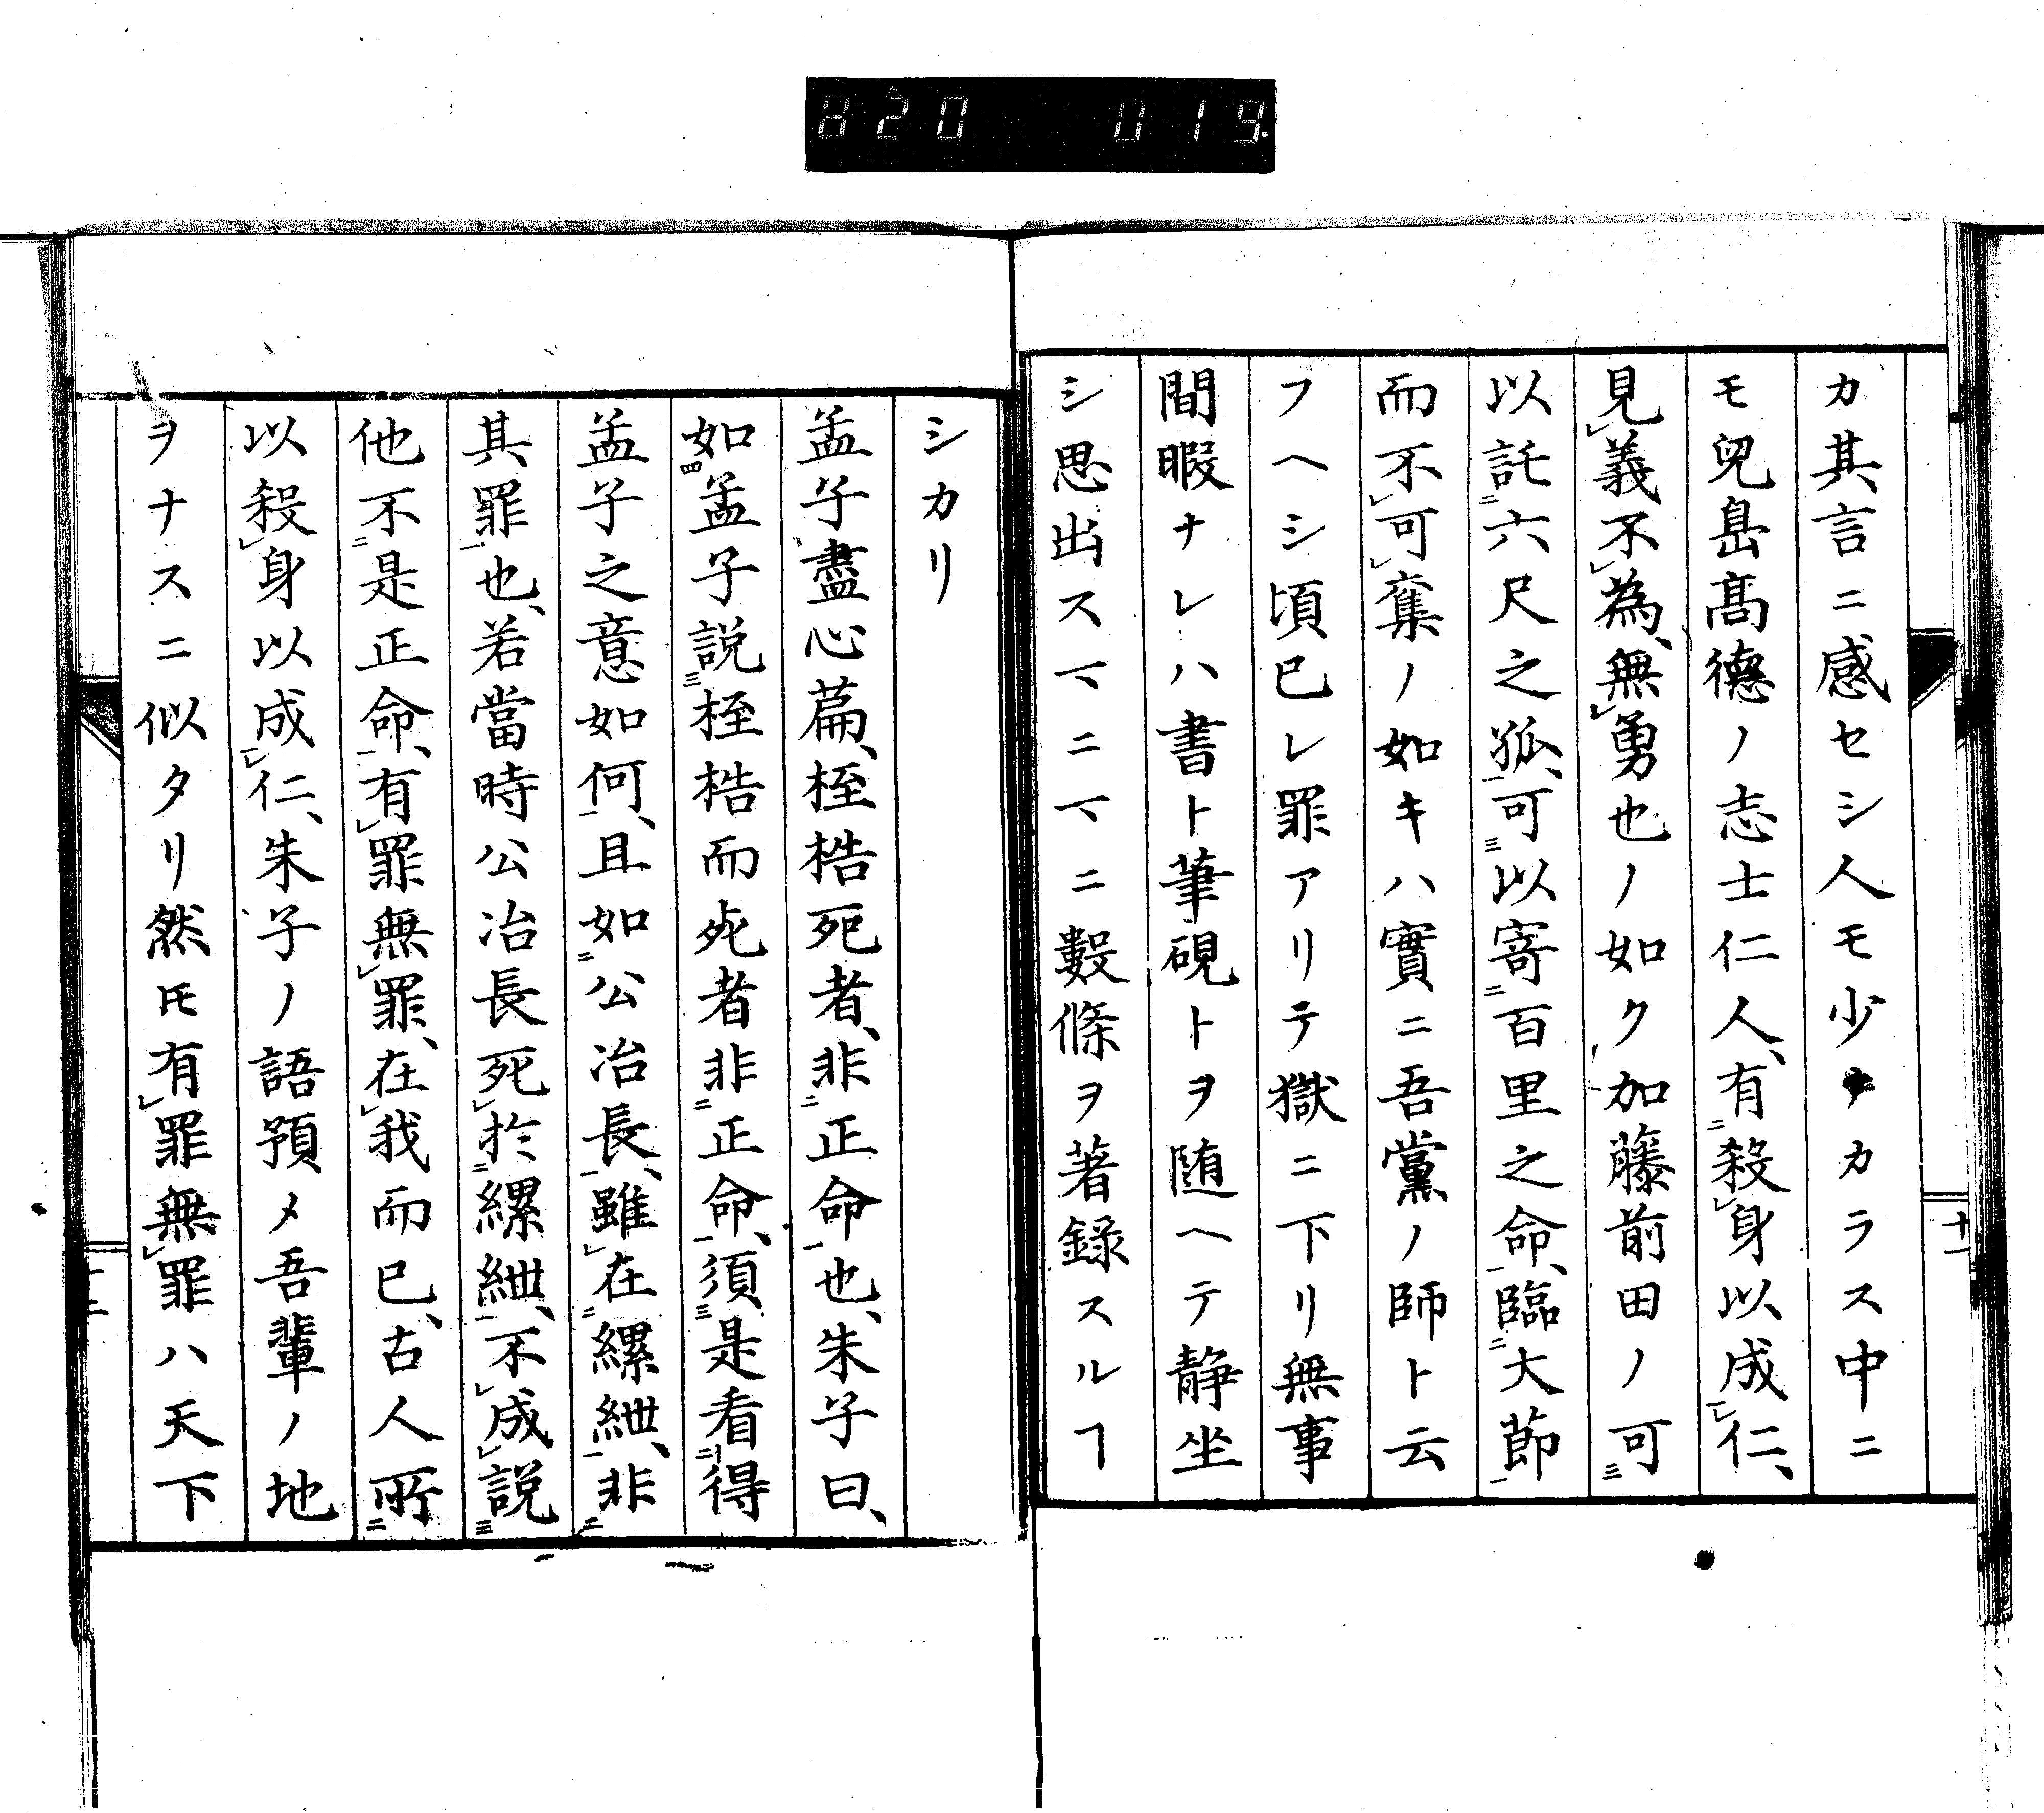 820 019
カ其言ニ感セシ人モ少ナカラス中ニ
モ兒島髙德ノ志士仁人、有二殺レ身以成一レ仁、
見レ義不レ為、無レ勇也ノ如ク加藤前田ノ可三
以託二六尺之孤一、可三以寄二百里之命一、臨二大節一
而不レ可レ奪ノ如キハ實ニ吾黨ノ師ト云
フヘシ頃已レ罪アリテ獄ニ下リ無事
間暇ナレハ書ト筆硯トヲ随ヘテ静坐
シ思出スマニマニ數條ヲ著録スルヿ
十一
シカリ
孟子盡心萹、桎梏死者、非二正命一也、朱子曰、
如四孟子說三桎梏而死者非二正命一、須三是看二得
孟子之意如何一、且如二公冶長一、雖レ在二縲紲一、非二
其罪一也、若當時公冶長死レ於二縲紲一、不レ成レ說三
他不二是正命一、有レ罪無レ罪、在レ我而已、古人所二
以殺レ身以成一レ仁、朱子ノ語預メ吾輩ノ地
ヲナスニ似タリ然𪜈有レ罪無レ罪ハ天下
十二